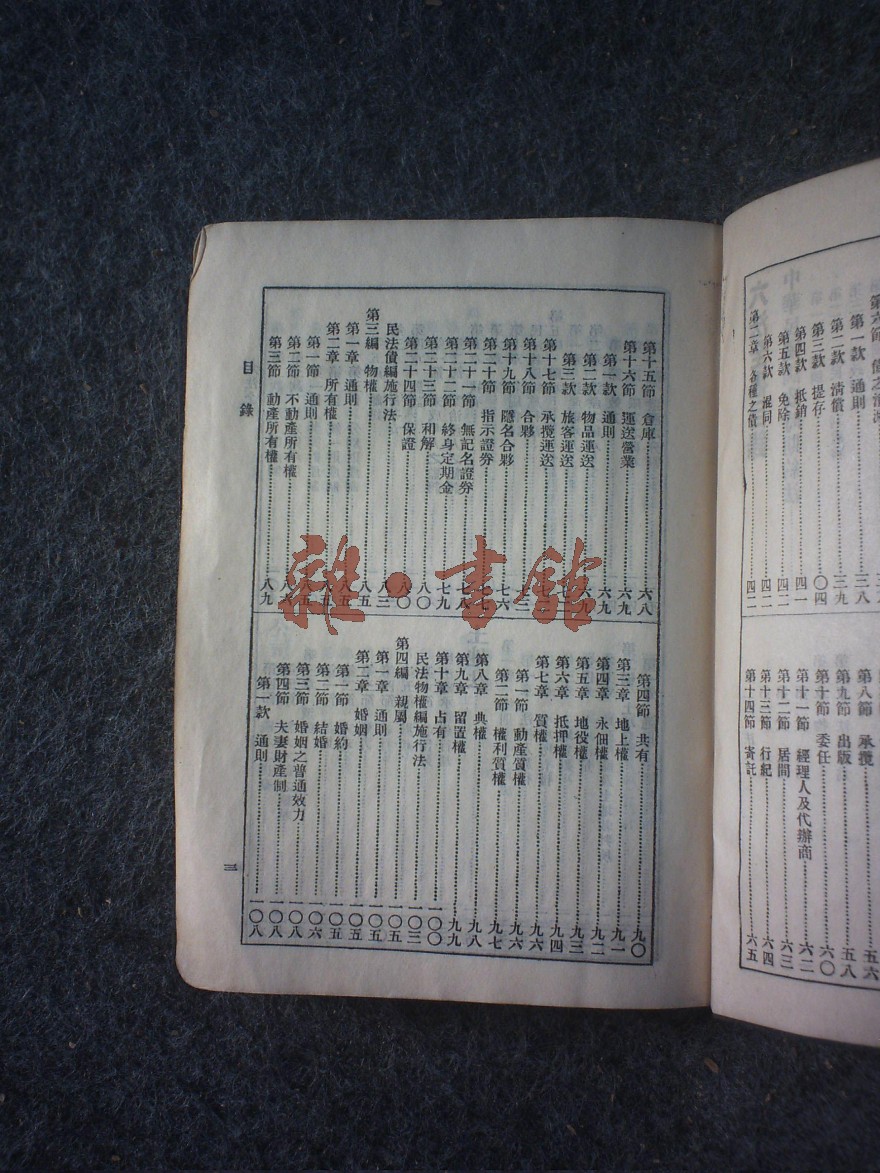 第六節 債之消滅
第一款 通則 三八
第二款 清償 三九
第三款 提存 〇四
第四款 抵銷 四一
第五款 免除 四二
第六款 混同 四二
第二章 各種之債 四二
第八節 承攬 五六
第九節 出版 五八
第十節 委任 六〇
第十一節 經理人及代辦商 六二
第十二節 居間 六三
第十三節 行紀 六四
第十四節 寄託 六五
第十五節 倉庫 六八
第十六節 運送營業 六九
第一款 通則 六九
第二款 物品運送 六九
第三款 旅客運送
第十七節 承攬運送
第十八節 合夥 七三
第十九節 隱名合夥 七六
第二十節 指示證券 七七
第二十一節 無記名證券 七八
第二十二節 終身定期金 七九
第二十三節 和解 八〇
第二十四節 保證 八〇
民法債編施行法 八三
第三編 物權 八五
第一章 通則 八五
第二章 所有權 八五
第一節 通則 八五
第二節 不動產所有權 八六
第三節 動產所有權 八九
第四節 共有 九〇
第三章 地上權 九一
第四章 永佃權 九二
第五章 地役權 九三
第六章 抵押權 九四
第七章 質權 九六
第一節 動產質權 九六
第二節 權利質權 九七
第八章 典權 九八
第九章 留置權 九九
第十章 占有 一〇〇
民法物權編施行法 一〇三
第四編 親屬 一〇五
第一章 通則 一〇五
第二章 婚姻 一〇五
第一節 婚約 一〇五
第二節 結婚 一〇六
第三節 婚姻之普通效力 一〇八
第四節 夫妻財產制 一〇八
第一款 通則 一〇八
目錄
三
雜·書館